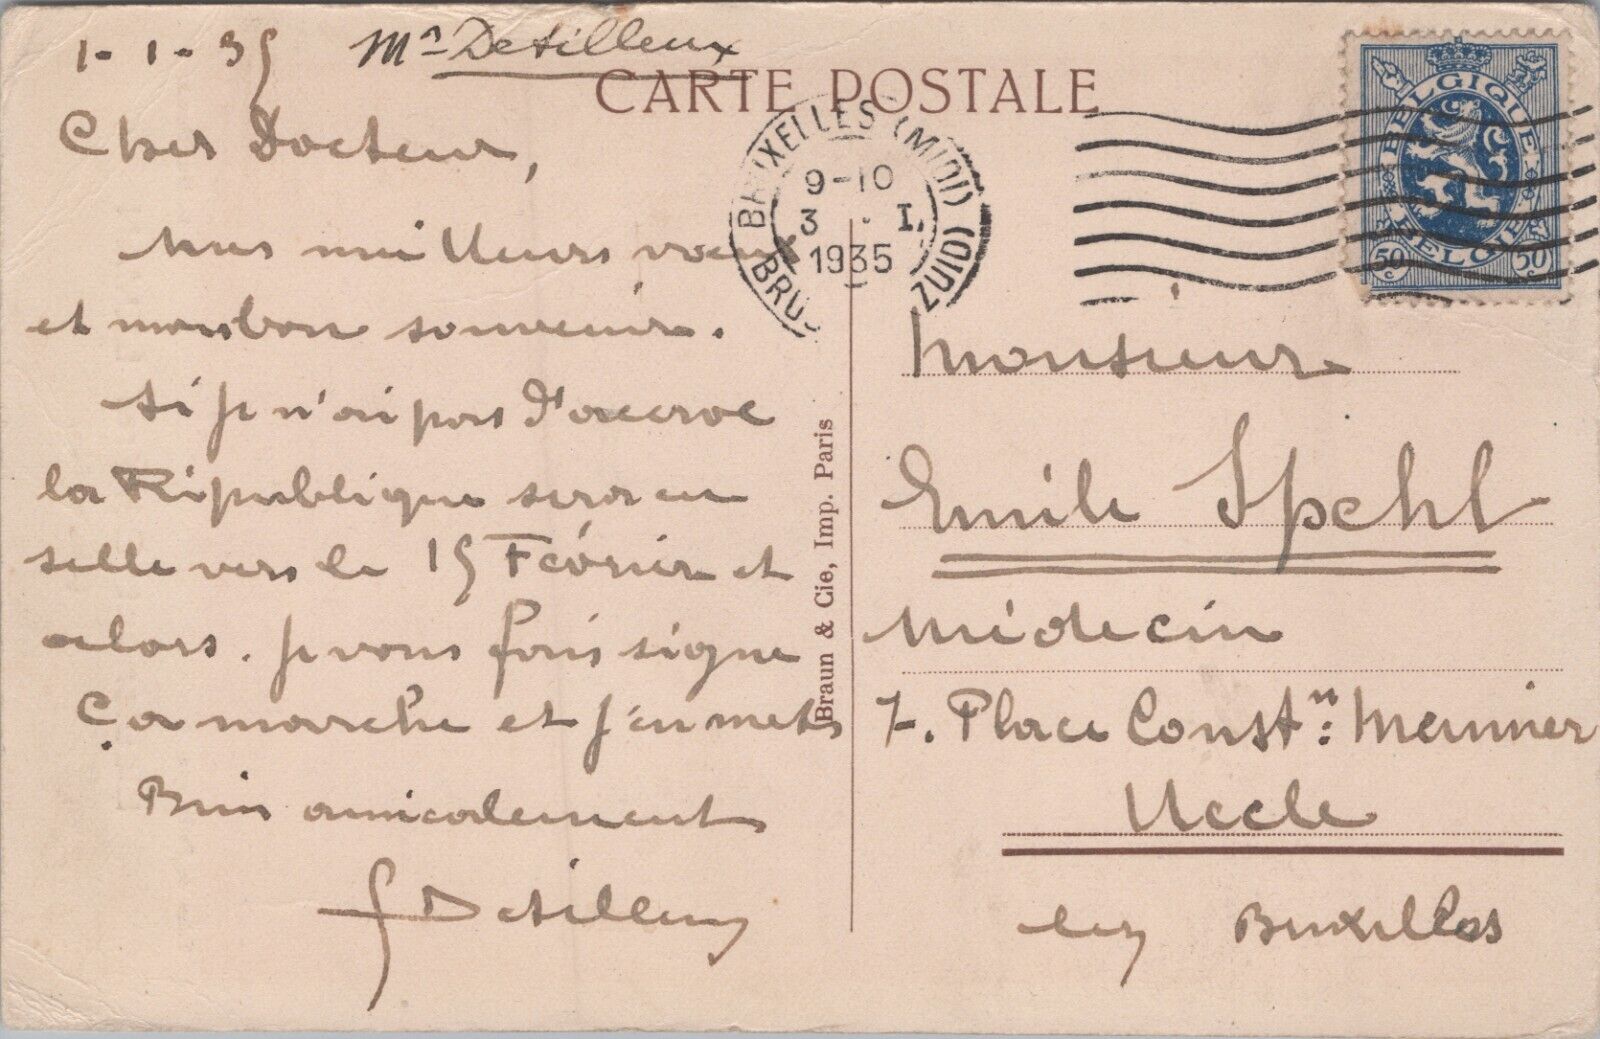 1-1-35 Mr Detilleux
CARTE POSTALE
Cher Docteur,
Mes meilleurs voeux
et mon bon souvenir.
Si je n'ai pas d'accroc
la République sera en
selle vers le 15 Février et
alors. je vous fais signe
Ça marche et j'en mets
Bien amicalement
J Detilleux
Braun & Cie, Imp. Paris
BRUXELLES (MIDI)
9-10
3 . I.
1935
BRUS (ZUID)
BELGIQUE
BELGIE
50c 50c
Monsieur
Emile Spehl
Médecin
7. Place Constn: Meunier
Uccle
lez Bruxelles